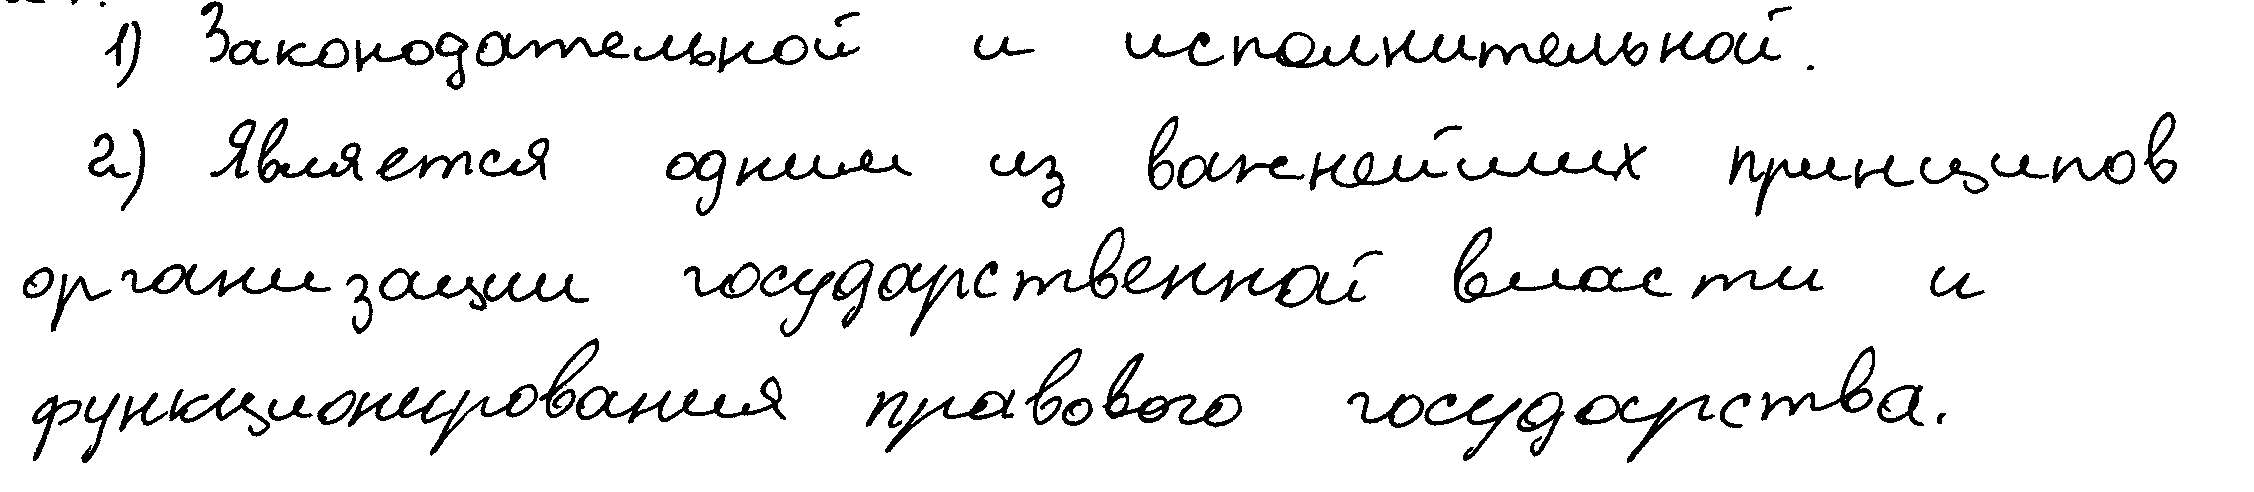 1) Законодательной и исполнительной.
2) Является одним из важнейших принципов
организации государственной власти и
функционирования правового государства.